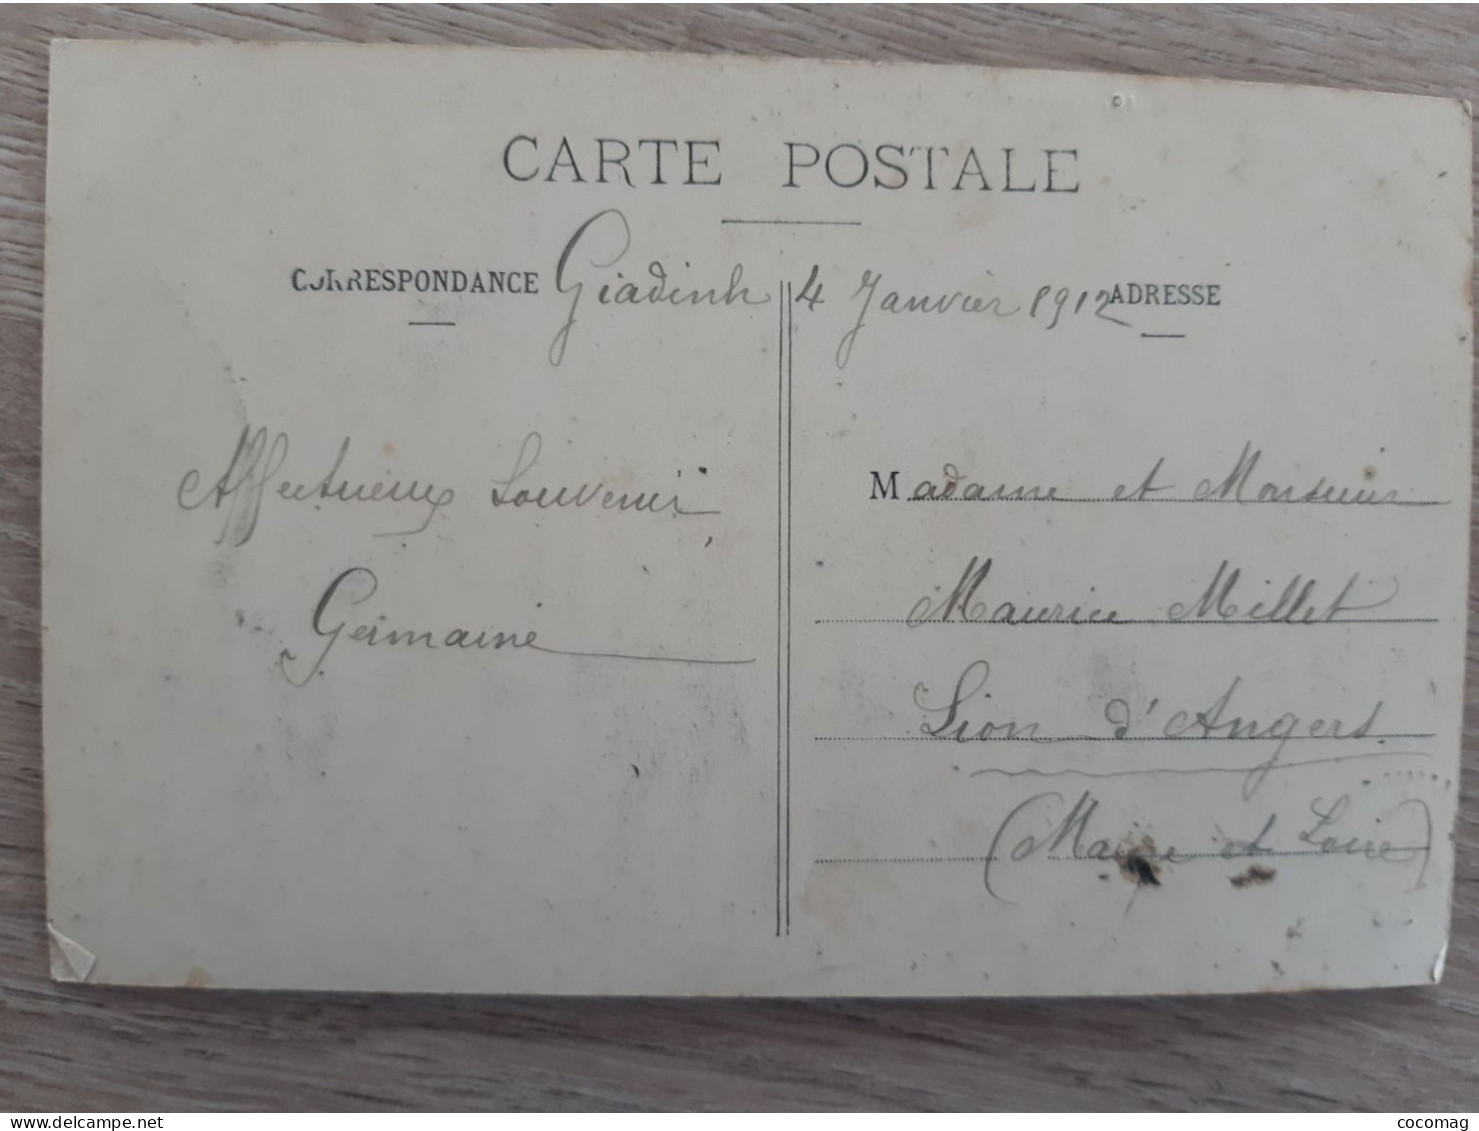 CARTE POSTALE
CORRESPONDANCE Giadinh 4 Janvier 1912 ADRESSE
Affectueux Souvenir
Germaine
Madame et Monsieur
Maurice Millet
Lion d'Angers
(Maine et Loire)
www.delcampe.net
cocomag